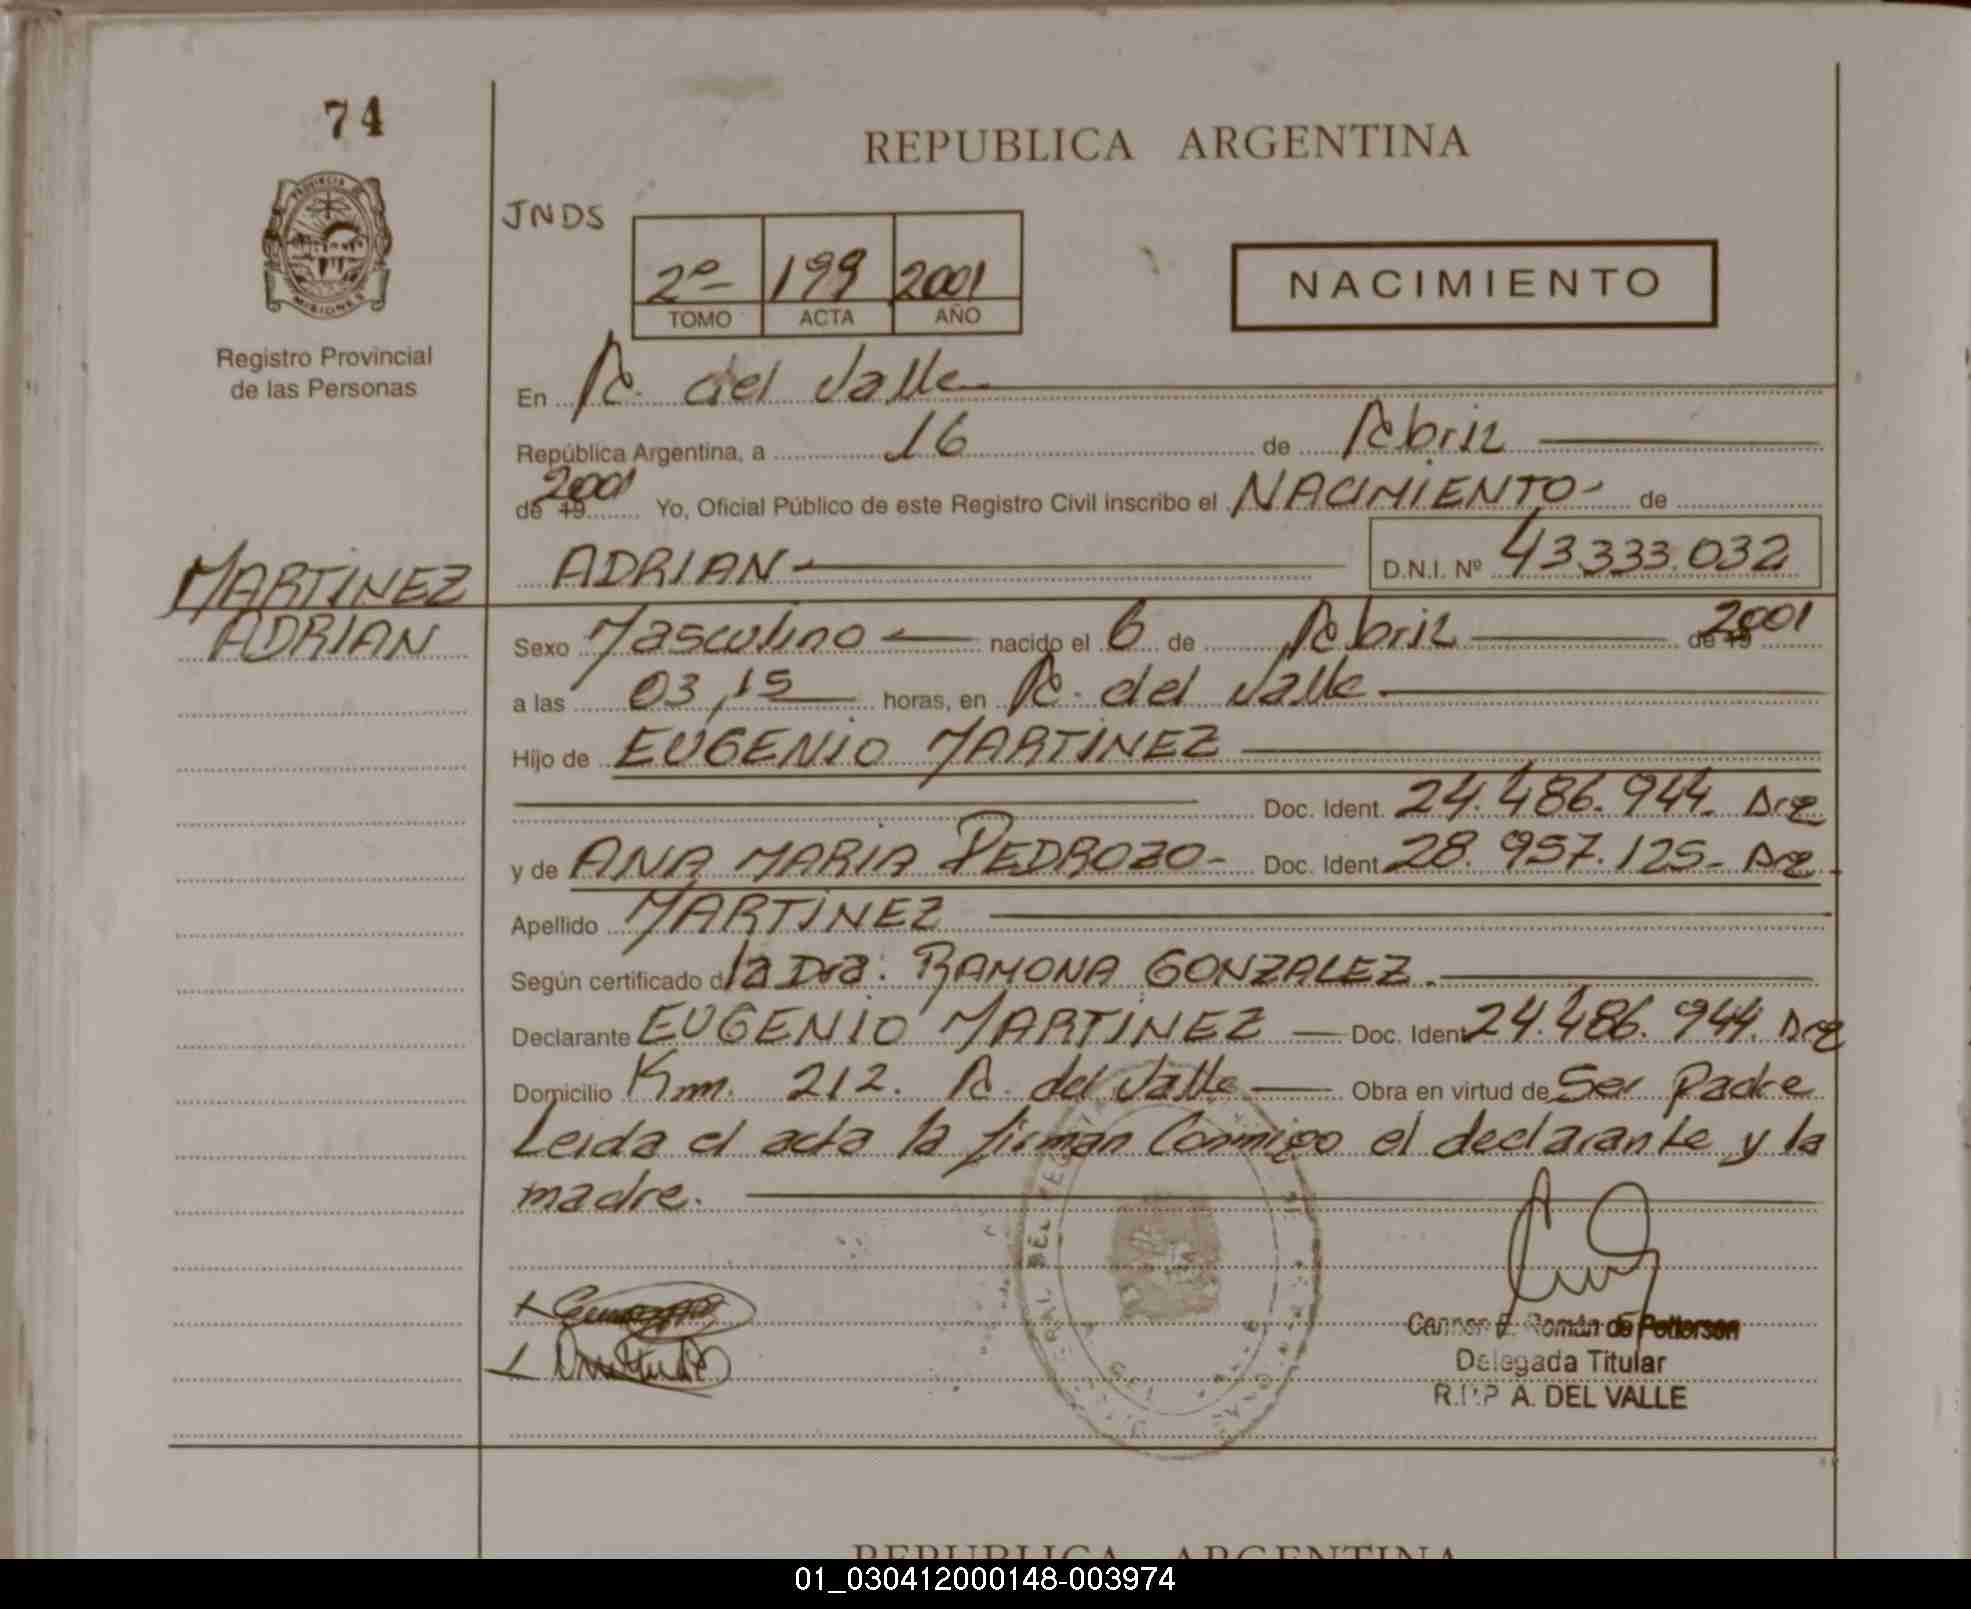 74
REPUBLICA ARGENTINA
PROVINCIA DE
MISIONES
Registro Provincial
de las Personas
JNDS
2º- 199 2001
TOMO ACTA AÑO
NACIMIENTO
En A. del Valle
República Argentina, a 16 de Abril
de 19 2001 Yo, Oficial Público de este Registro Civil inscribo el NACIMIENTO- de
ADRIAN D.N.I. Nº 43.333.032
MARTINEZ
ADRIAN
Sexo Masculino nacido el 6 de Abril de 19 2001
a las 03,15 horas, en A. del Valle
Hijo de EUGENIO MARTINEZ
Doc. Ident. 24.486.944- Arg
y de ANA MARIA PEDROZO- Doc. Ident 28.957.125- Arg
Apellido MARTINEZ
Según certificado d la Dra: RAMONA GONZALEZ.
Declarante EUGENIO MARTINEZ Doc. Ident 24.486.944. Arg
Domicilio Km. 212. A. del Valle Obra en virtud de Ser Padre
Leida el acta la firman Conmigo el declarante y la
madre.
Román de Petterson
Delegada Titular
R.P.P A. DEL VALLE
REPUBLICA ARGENTINA
01_030412000148-003974